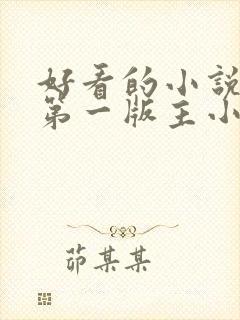 好看的小說
第一版主小
茆某某